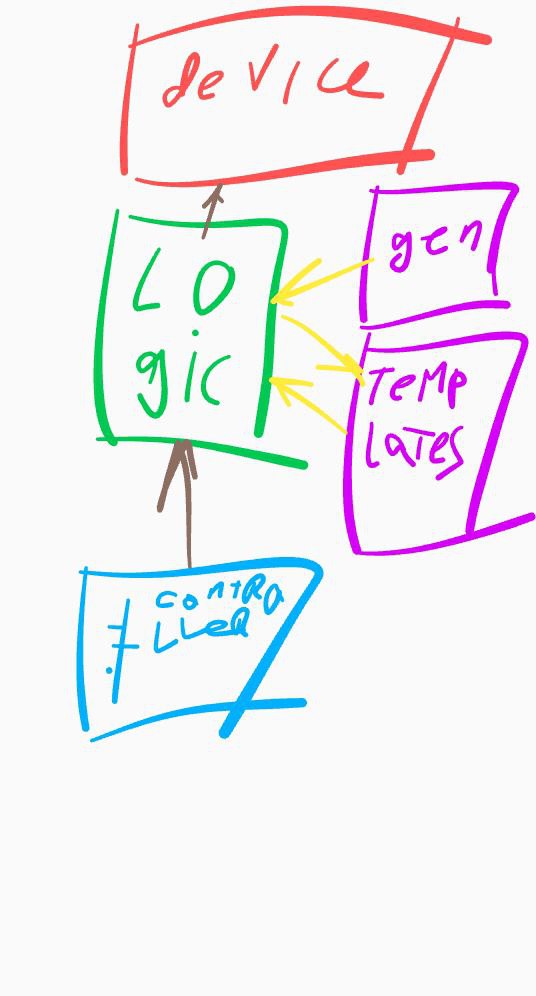 deVice
gen
LO
gic
TeMP
LaTes
contRo
LLeR